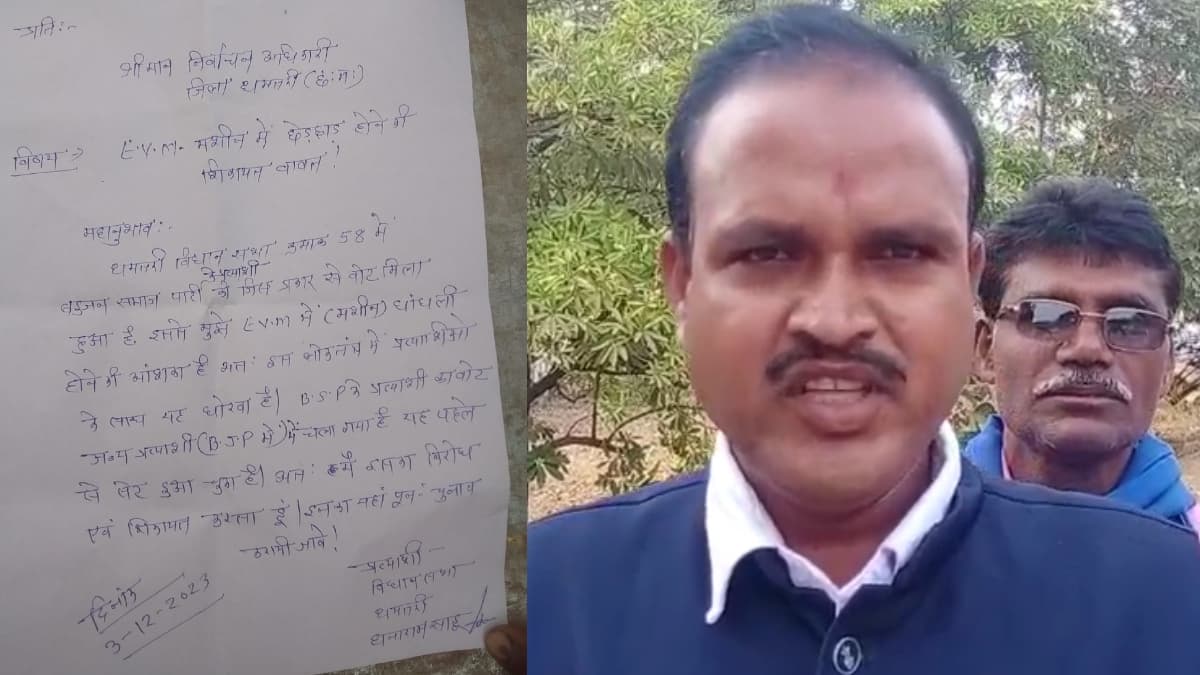 प्रति:-
श्रीमान निर्वाचन अधिकारी
जिला धमतरी (छ:ग:)
विषय => E.V.M. मशीन में छेड़छाड़ होने की
शिकायत बाबत!
महानुभाव:-
धमतरी विधान सभा क्रमांक 58 में
बहुजन समाज पार्टी के प्रत्याशी को जिस प्रकार से वोट मिला
हुआ है, इससे मुझे E.V.M में (मशीन) धांधली
होने की आंशका है अत: इस लोकतंत्र में प्रत्याशीओ
के साथ यह धोखा है। B.S.P के प्रत्याशी का वोट
अन्य प्रत्याशी (B.J.P में) में चला गया है यह पहले
से सेट हुआ है। अत: मैं इसका विरोध
एवं शिकायत करता हूँ। इसका यहां पून: चुनाव
करायी जावे!
प्रत्याशी -
विधानसभा
धमतरी
दिनांक
3-12-2023